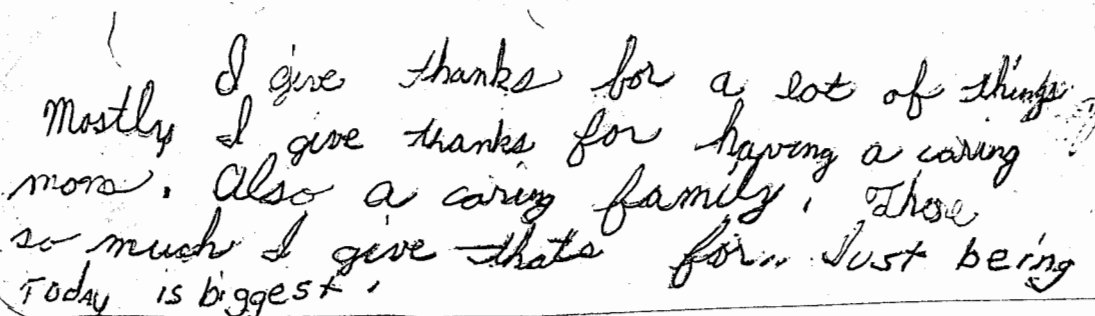 I give thanks for a lot of things
Mostly I give thanks for having a caring
mom. Also a caring family. Those
so much I give thats for.. Just being
Today is biggest.